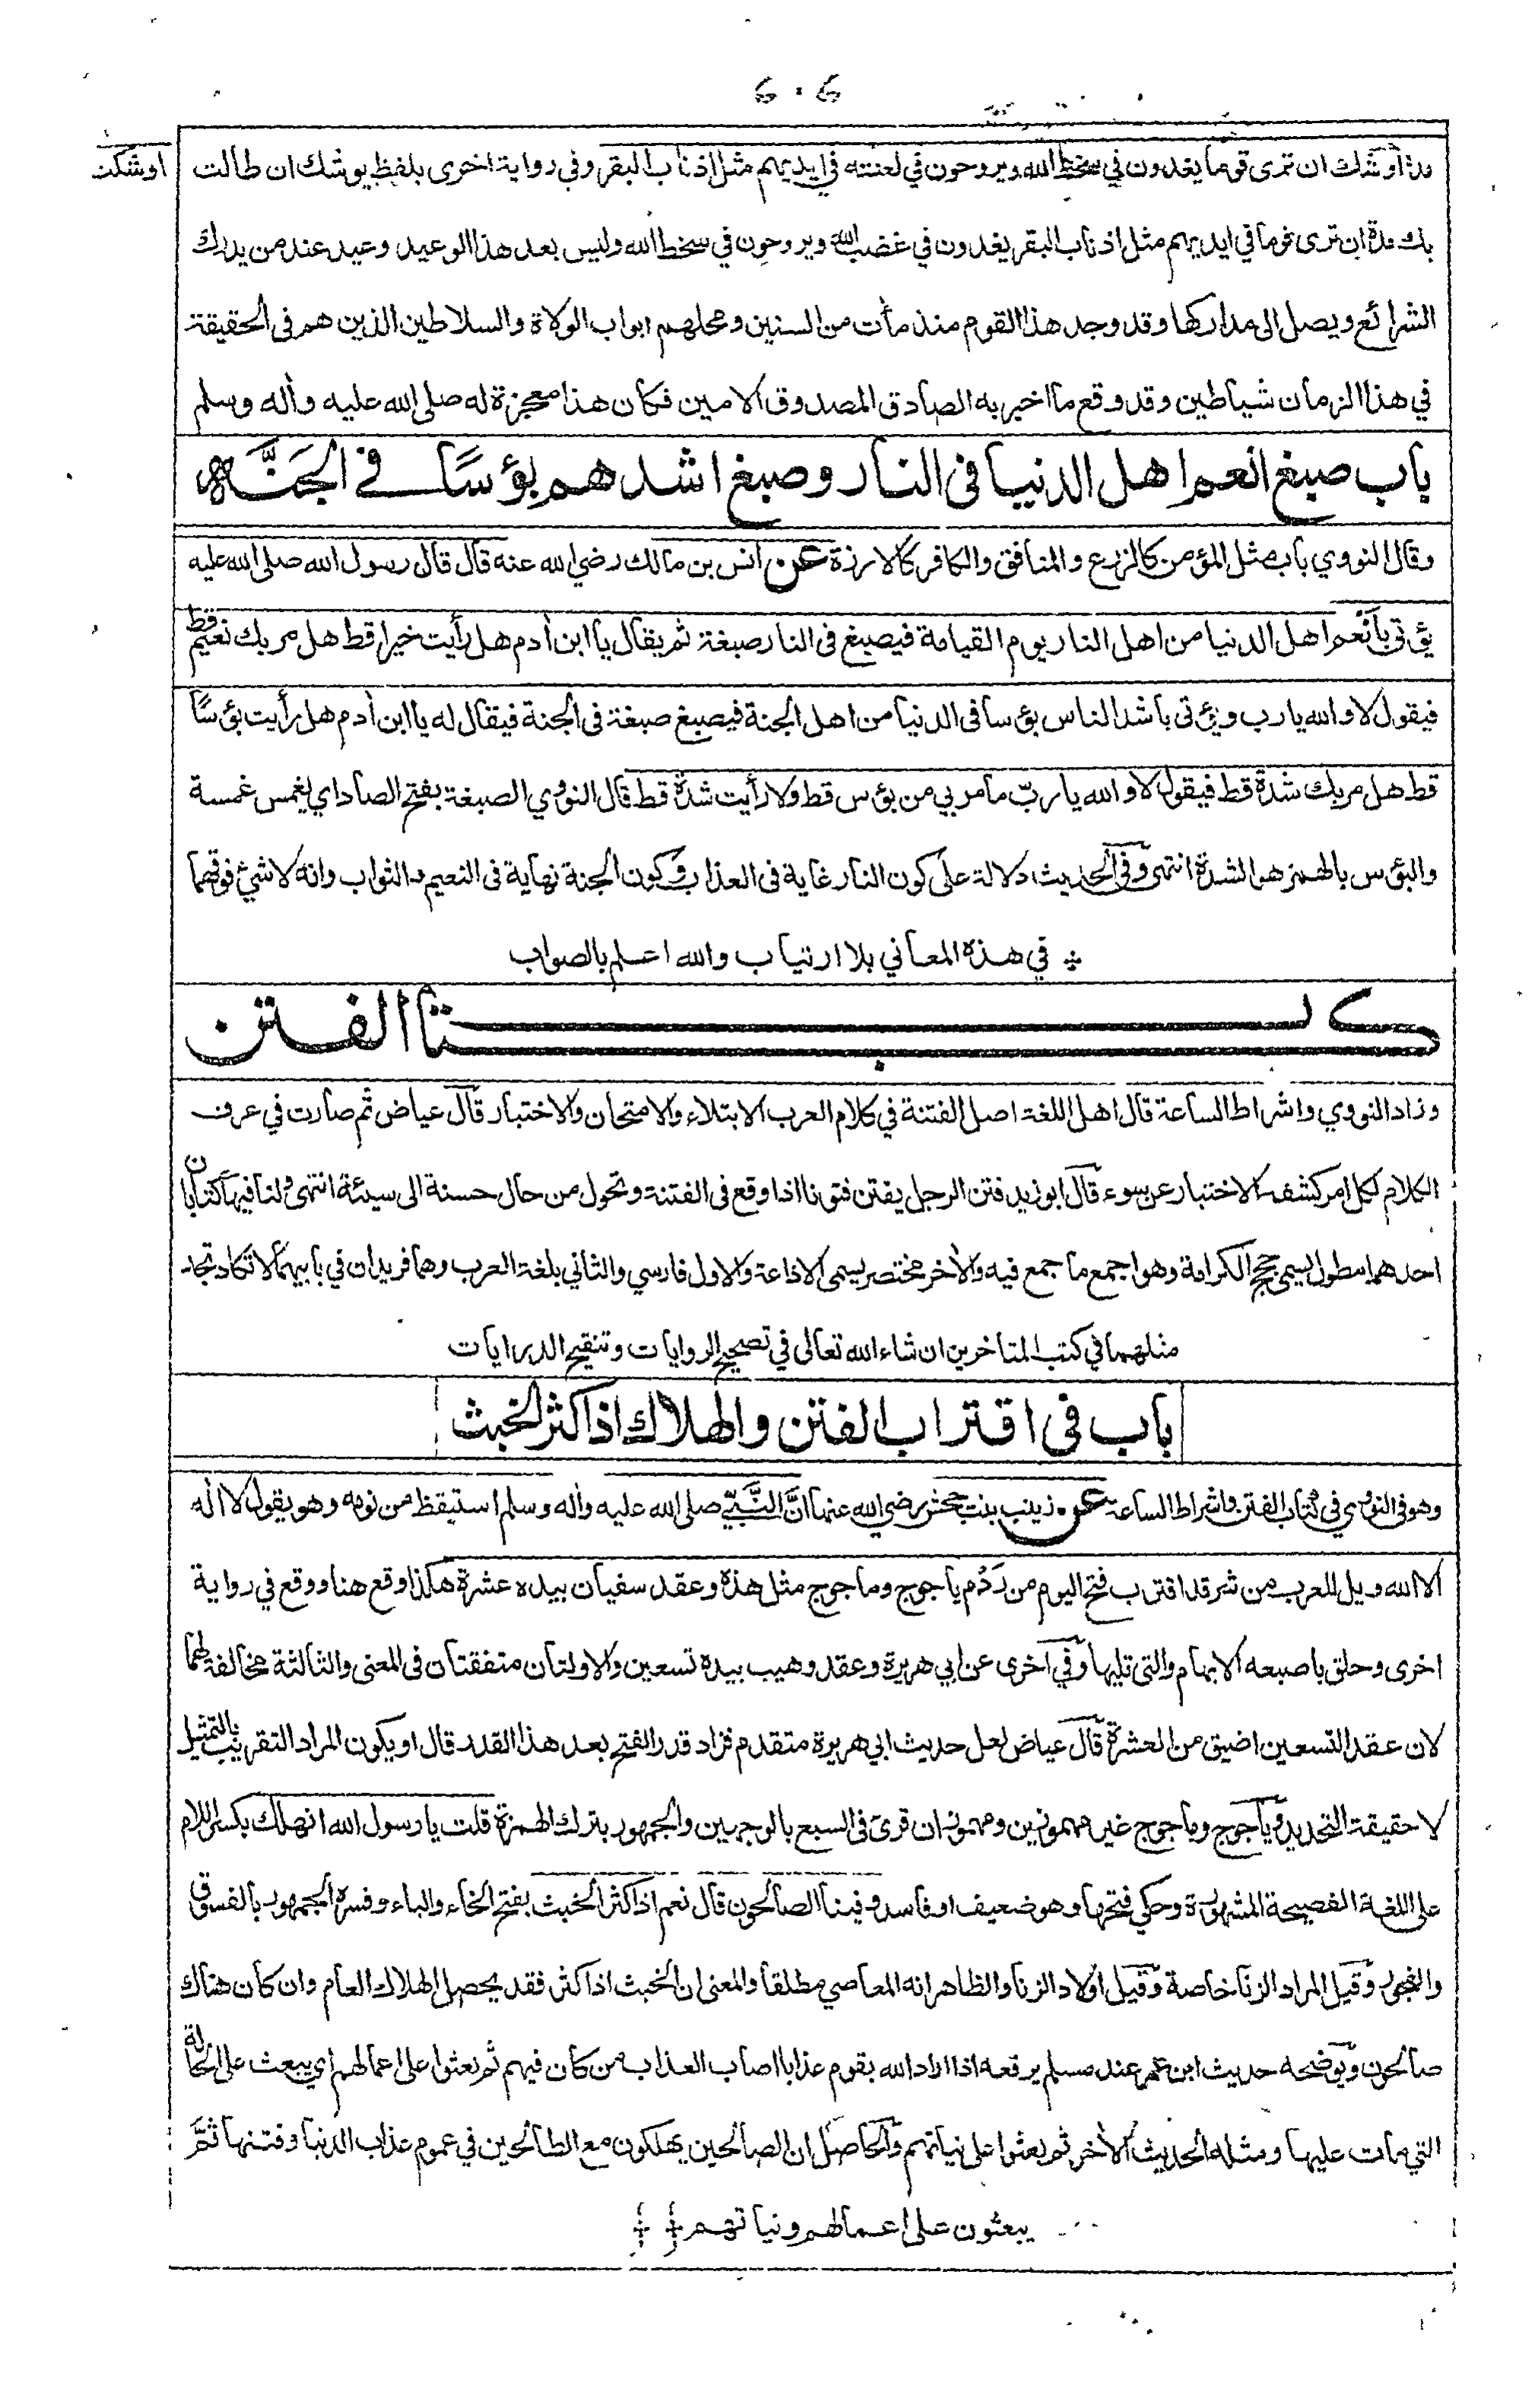 ٤٠٤
اوشكت
مدة أوشك ان ترى قوما يغدون في سخط الله ويروحون في لعنته في ايديهم مثل اذناب البقر وفي رواية اخرى بلفظ يوشك ان طالت
بك مدة ان ترى قوما في ايديهم مثل اذناب البقر يغدون في غضب الله ويروحون في سخط الله وليس بعد هذا الوعيد وعيد عند من يدرك
الشرائع ويصل الى مداركها وقد وجد هذا القوم منذ مأت من السنين ومحلهم ابواب الولاة والسلاطين الذين هم فى الحقيقة
في هذا الزمان شياطين وقد وقع ما اخبر به الصادق المصدوق الامين فكان هذا معجزة له صلى الله عليه وأله وسلم
باب صبغ انعم اهل الدنيا فى النار وصبغ اشدهم بؤسًا في الجَنَّه
وقال النووي باب مثل المؤمن كالزرع والمنافق والكافر كالارزة عن انس بن مالك رضي الله عنه قال قال رسول الله صلى الله عليه
يؤتى بأنْعم اهل الدنيا من اهل النار يوم القيامة فيصبغ فى النار صبغة ثم يقال يا ابن أدم هل رأيت خيرا قط هل مر بك نعيم قط
فيقول لا والله يا رب ويؤتى باشد الناس بؤسا فى الدنيا من اهل الجنة فيصبغ صبغة فى الجنة فيقال له يا ابن أدم هل رأيت بؤسًا
قط هل مر بك شدة قط فيقول لا والله يا ربّ ما مر بي من بؤس قط ولا رأيت شدة قط قال النووي الصبغة بفتح الصاد اي يغمس غمسة
والبؤس بالهمز هو الشدة انتهى وفى الحديث دلالة على كون النار غاية فى العذاب وكون الجنة نهاية فى النعيم والثواب وانه لا شيئ فوقهما
في هذه المعاني بلا ارتياب والله اعلم بالصواب
كتاب الفتن
وزاد النووي واشراط الساعة قال اهل اللغة اصل الفتنة في كلام العرب الابتلاء والامتحان والاختبار قال عياض ثم صارت في عرف
الكلام لكل امر كشفه الاختبار عن سوء قال ابو زيد فتن الرجل يفتن فتونا اذا وقع فى الفتنة وتحول من حال حسنة الى سيئة انتهى ولنا فيها كتابان
احدهما مطول يسمى حجج الكرامة وهو اجمع ما جمع فيه والأخر مختصر يسمى الاذاعة والاول فارسي والثاني بلغة العرب وهما فريدان في بابيهما لا تكاد تجد
مثلهما في كتب المتاخرين ان شاء الله تعالى في تصحيح الروايات وتنقيح الدرايات
باب فى اقتراب الفتن والهلاك اذا كثر الخبث
وهو فى النووي في كتاب الفتن واشراط الساعة عن زينب بنت جحش رضي الله عنها انَّ النَّبيّ صلى الله عليه وأله وسلم استيقظ من نومه وهو يقول لا اله
الا الله ويل للعرب من شر قد اقترب فتح اليوم من رَدْم يأجوج ومأجوج مثل هذه وعقد سفيان بيده عشرة هكذا وقع هنا ووقع في رواية
اخرى وحلق باصبعه الابهام والتي تليها وفي اخرى عن ابي هريرة وعقد وهيب بيده تسعين والاولتان متفقتان فى المعنى والثالثة مخالفة لهما
لان عقد التسعين اضيق من العشرة قال عياض لعل حديث ابي هريرة متقدم فزاد قدر الفتح بعد هذا القدر قال او يكون المراد التقريب بالتمثيل
لا حقيقة التحديد ويأجوج ومأجوج غير مهموزين ومهموزان قرئ فى السبع بالوجهين والجمهور بترك الهمزة قلت يا رسول الله انهلك بكسر اللام
على اللغة الفصيحة المشهورة وحكي فتحها وهو ضعيف او فاسد وفينا الصالحون قال نعم اذا كثر الخبث بفتح الخاء والباء وفسره الجمهور بالفسوق
والفجور وقيل المراد الزنا خاصة وقيل اولاد الزنا والظاهر انه المعاصي مطلقا والمعنى ان الخبث اذا كثر فقد يحصل الهلاك العام وان كان هناك
صالحون ويوضحه حديث ابن عمر عند مسلم يرفعه اذا اراد الله بقوم عذابا اصاب العذاب من كان فيهم ثم بعثوا على اعمالهم اي يبعث على الحالة
التي مات عليها ومثله الحديث الأخر ثم بعثوا على نياتهم والحاصل ان الصالحين يهلكون مع الطالحين في عموم عذاب الدنيا وفتنها ثمَّ
يبعثون على اعمالهم ونياتهم